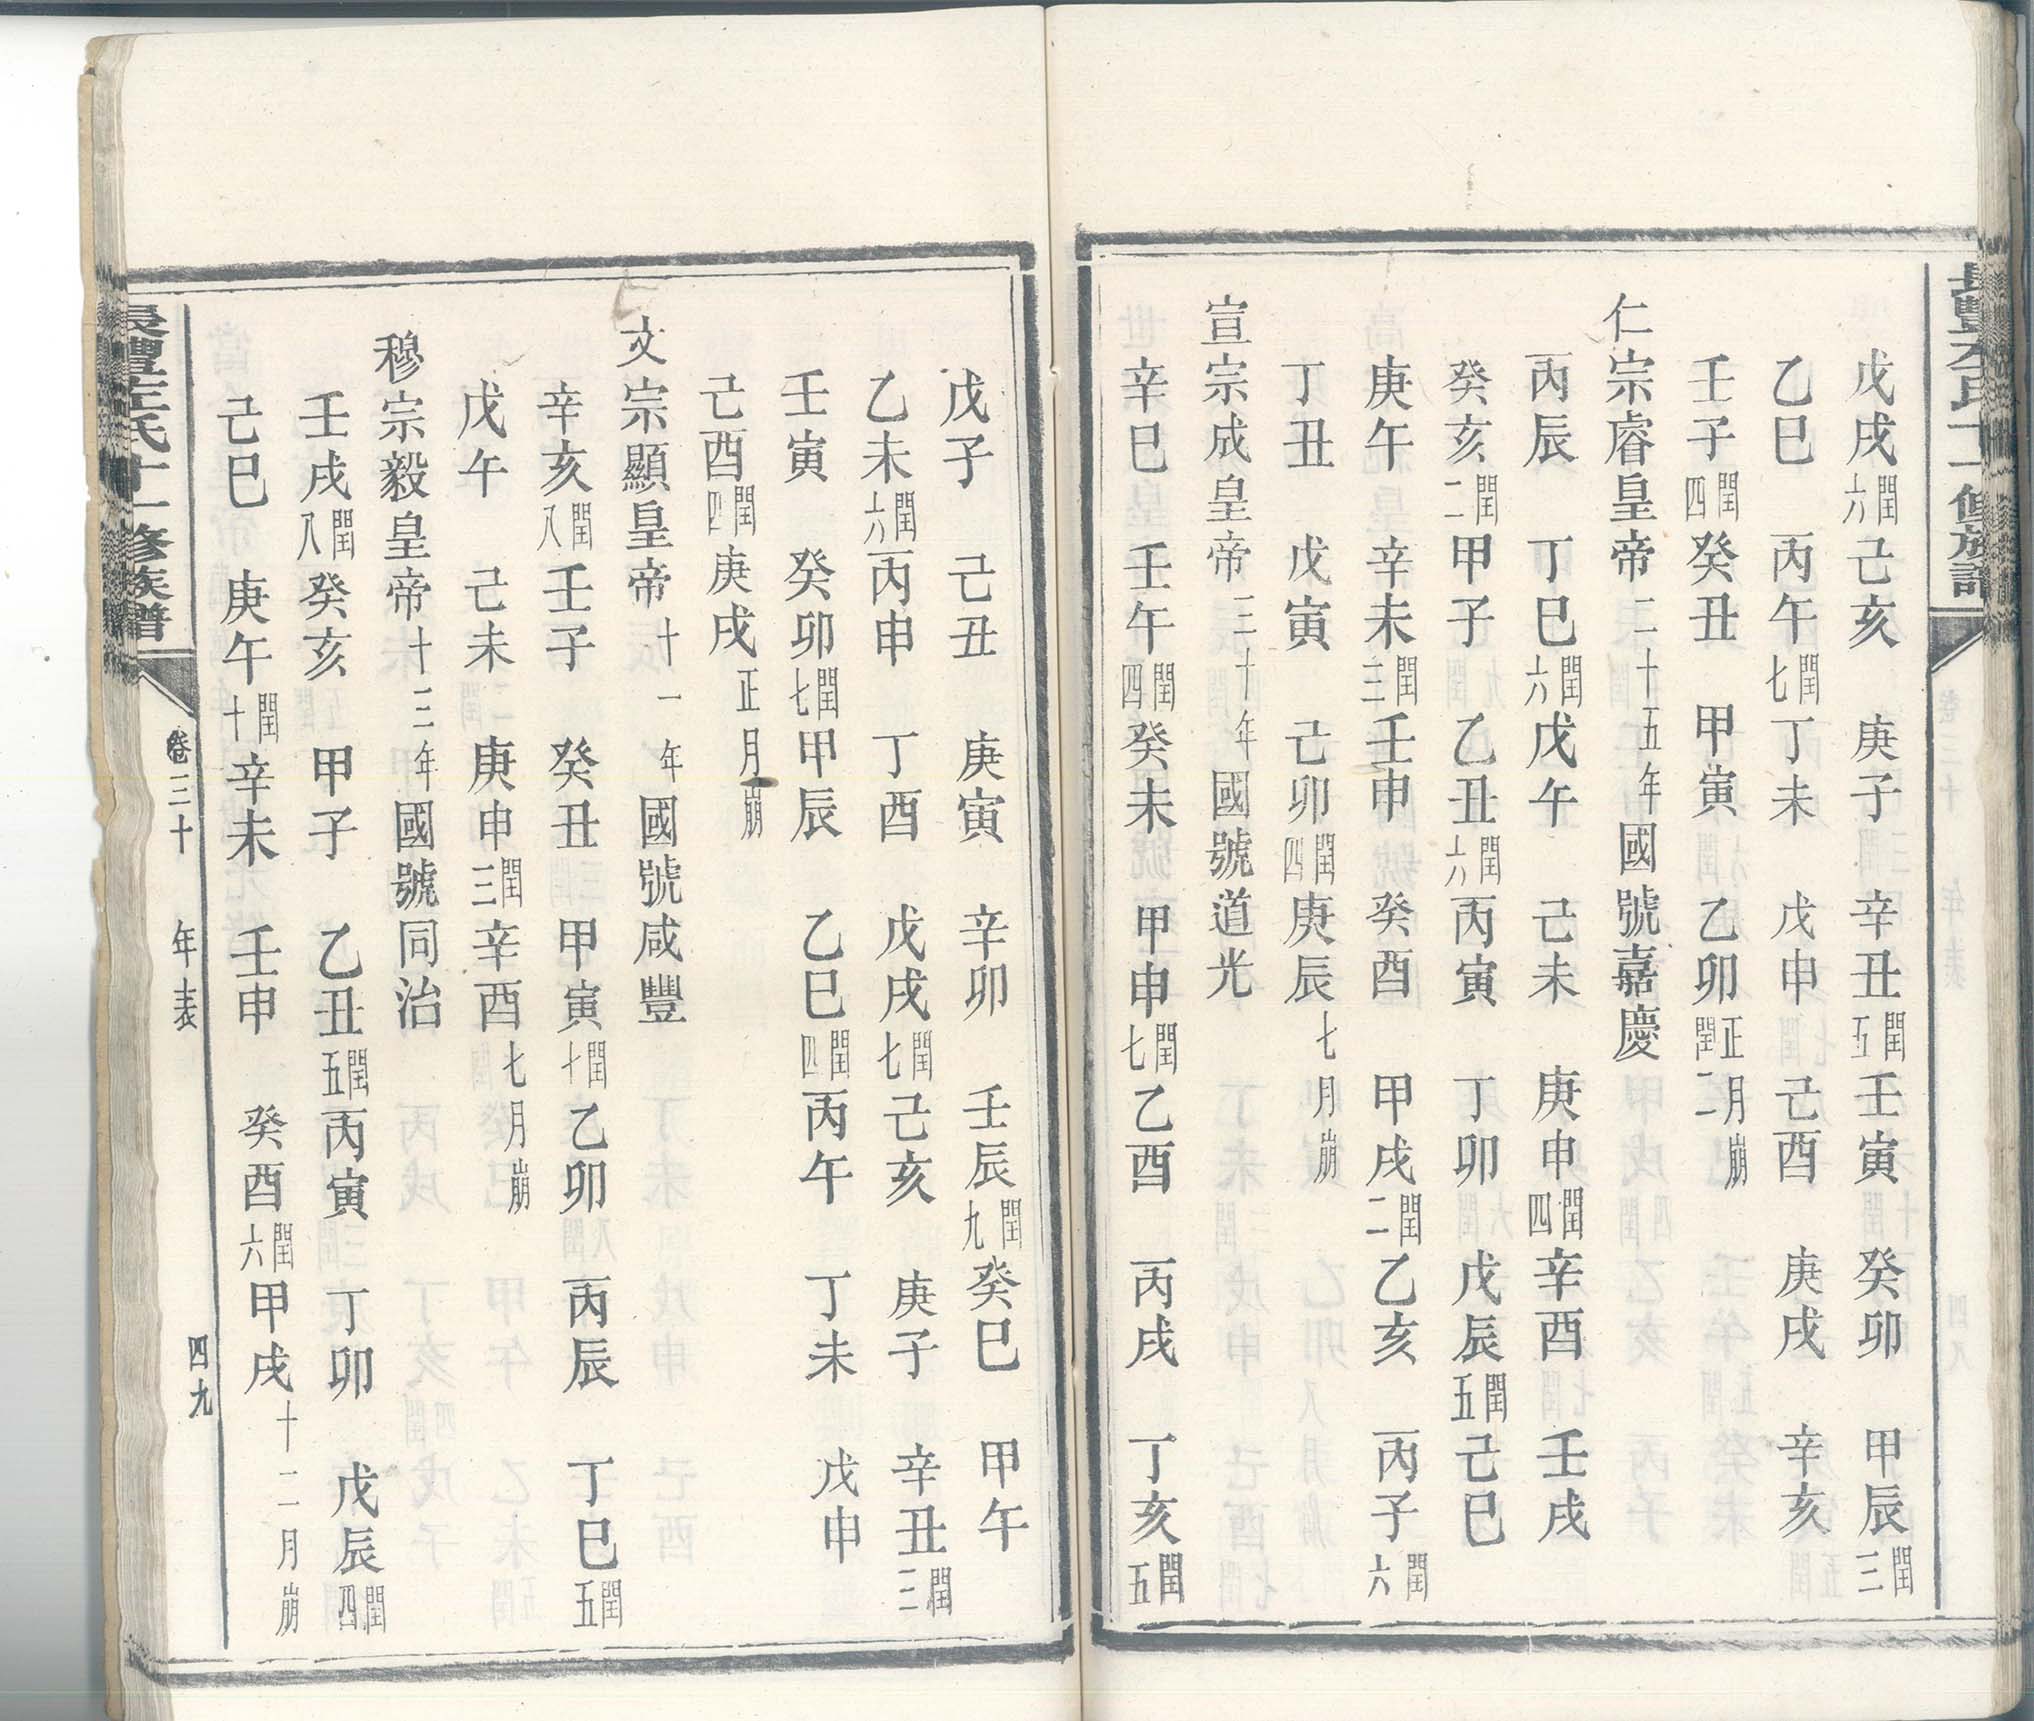 戊戌閏六己亥 庚子 辛丑閏五壬寅 癸卯 甲辰閏三
乙巳 丙午閏七丁未 戊申 己酉 庚戌 辛亥
壬子閏四癸丑 甲寅 乙卯正月崩閏二
仁宗睿皇帝二十五年國號嘉慶
丙辰 丁巳閏六戊午 己未 庚申閏四辛酉 壬戌
癸亥閏二甲子 乙丑閏六丙寅 丁卯 戊辰閏五己巳
庚午 辛未閏三壬申 癸酉 甲戌閏二乙亥 丙子閏六
丁丑 戊寅 己卯閏四庚辰七月崩
宣宗成皇帝三十年國號道光
辛巳 壬午閏四癸未 甲申閏七乙酉 丙戌 丁亥閏五
戊子 己丑 庚寅 辛卯 壬辰閏九癸巳 甲午
乙未閏六丙申 丁酉 戊戌閏七己亥 庚子 辛丑閏三
壬寅 癸卯閏七甲辰 乙巳閏四丙午 丁未 戊申
己酉閏四庚戌正月崩
文宗顯皇帝十一年國號咸豐
辛亥閏八壬子 癸丑 甲寅閏十乙卯 丙辰 丁巳閏五
戊午 己未 庚申閏三辛酉七月崩
穆宗毅皇帝十三年國號同治
壬戌閏八癸亥 甲子 乙丑閏五丙寅 丁卯 戊辰閏四
己巳 庚午閏十辛未 壬申 癸酉閏六甲戌十二月崩
氏十一修族譜 卷三十 年表 四九